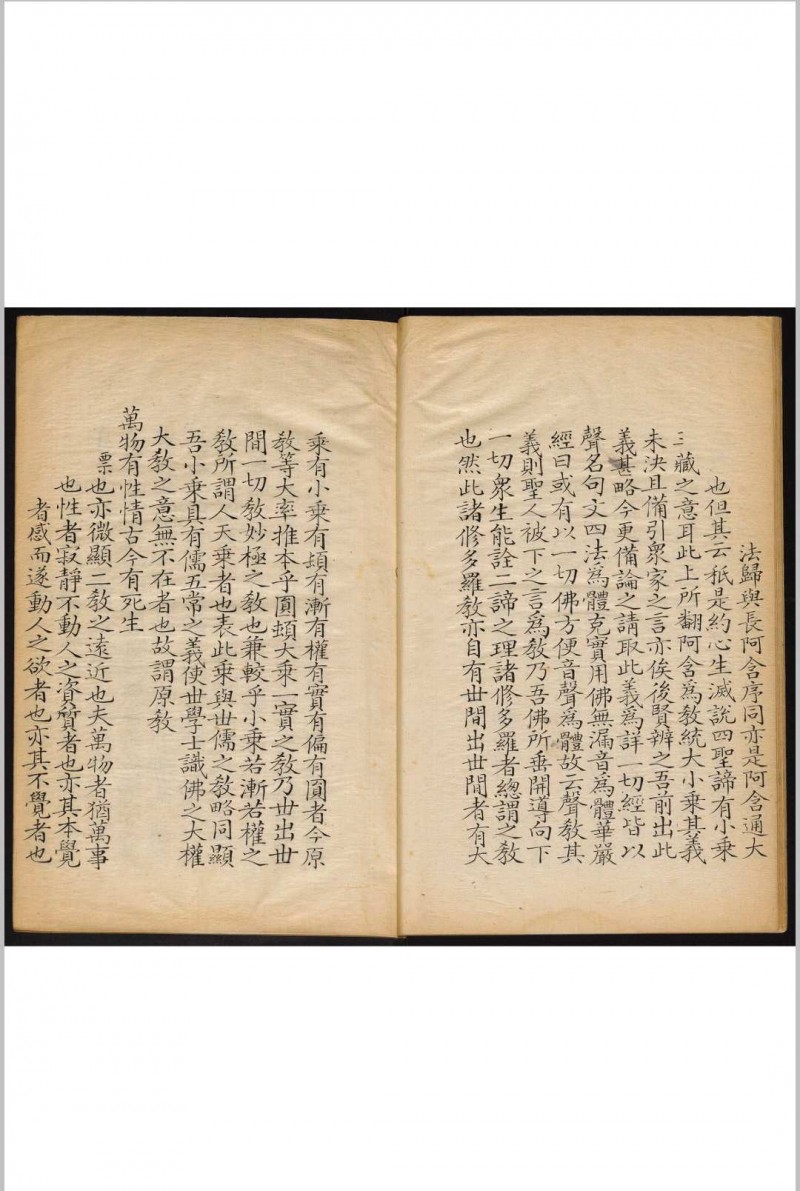 法歸與長阿含序同亦是阿含通大
也但其云秖是約心生滅說四聖諦有小乘
三藏之意耳此上所翻阿含爲教統大小乘其義
未決且備引衆家之言亦俟後賢辨之吾前出此
義甚略今更備論之請取此義爲詳一切經皆以
聲名句文四法爲體克實用佛無漏音爲體華嚴
經曰或有以一切佛方便音聲爲體故云聲教其
義則聖人被下之言爲教乃吾佛所垂開導向下
一切衆生能詮二諦之理諸修多羅者總謂之教
也然此諸修多羅教亦自有世間出世間者有大
乘有小乘有頓有漸有權有實有偏有圓者今原
教等大率推本乎圓頓大乘一實之教乃世出世
間一切教妙極之教也兼較乎小乘若漸若權之
教所謂人天乘者也表此乘與世儒之教略同顯
吾小乘具有儒五常之義使世學士識佛之大權
大教之意無不在者也故謂原教
萬物有性情古今有死生
票也亦微顯二教之遠近也夫萬物者猶萬事
也性者寂靜不動人之資質者也亦其本覺
者感而遂動人之欲者也亦其不覺者也